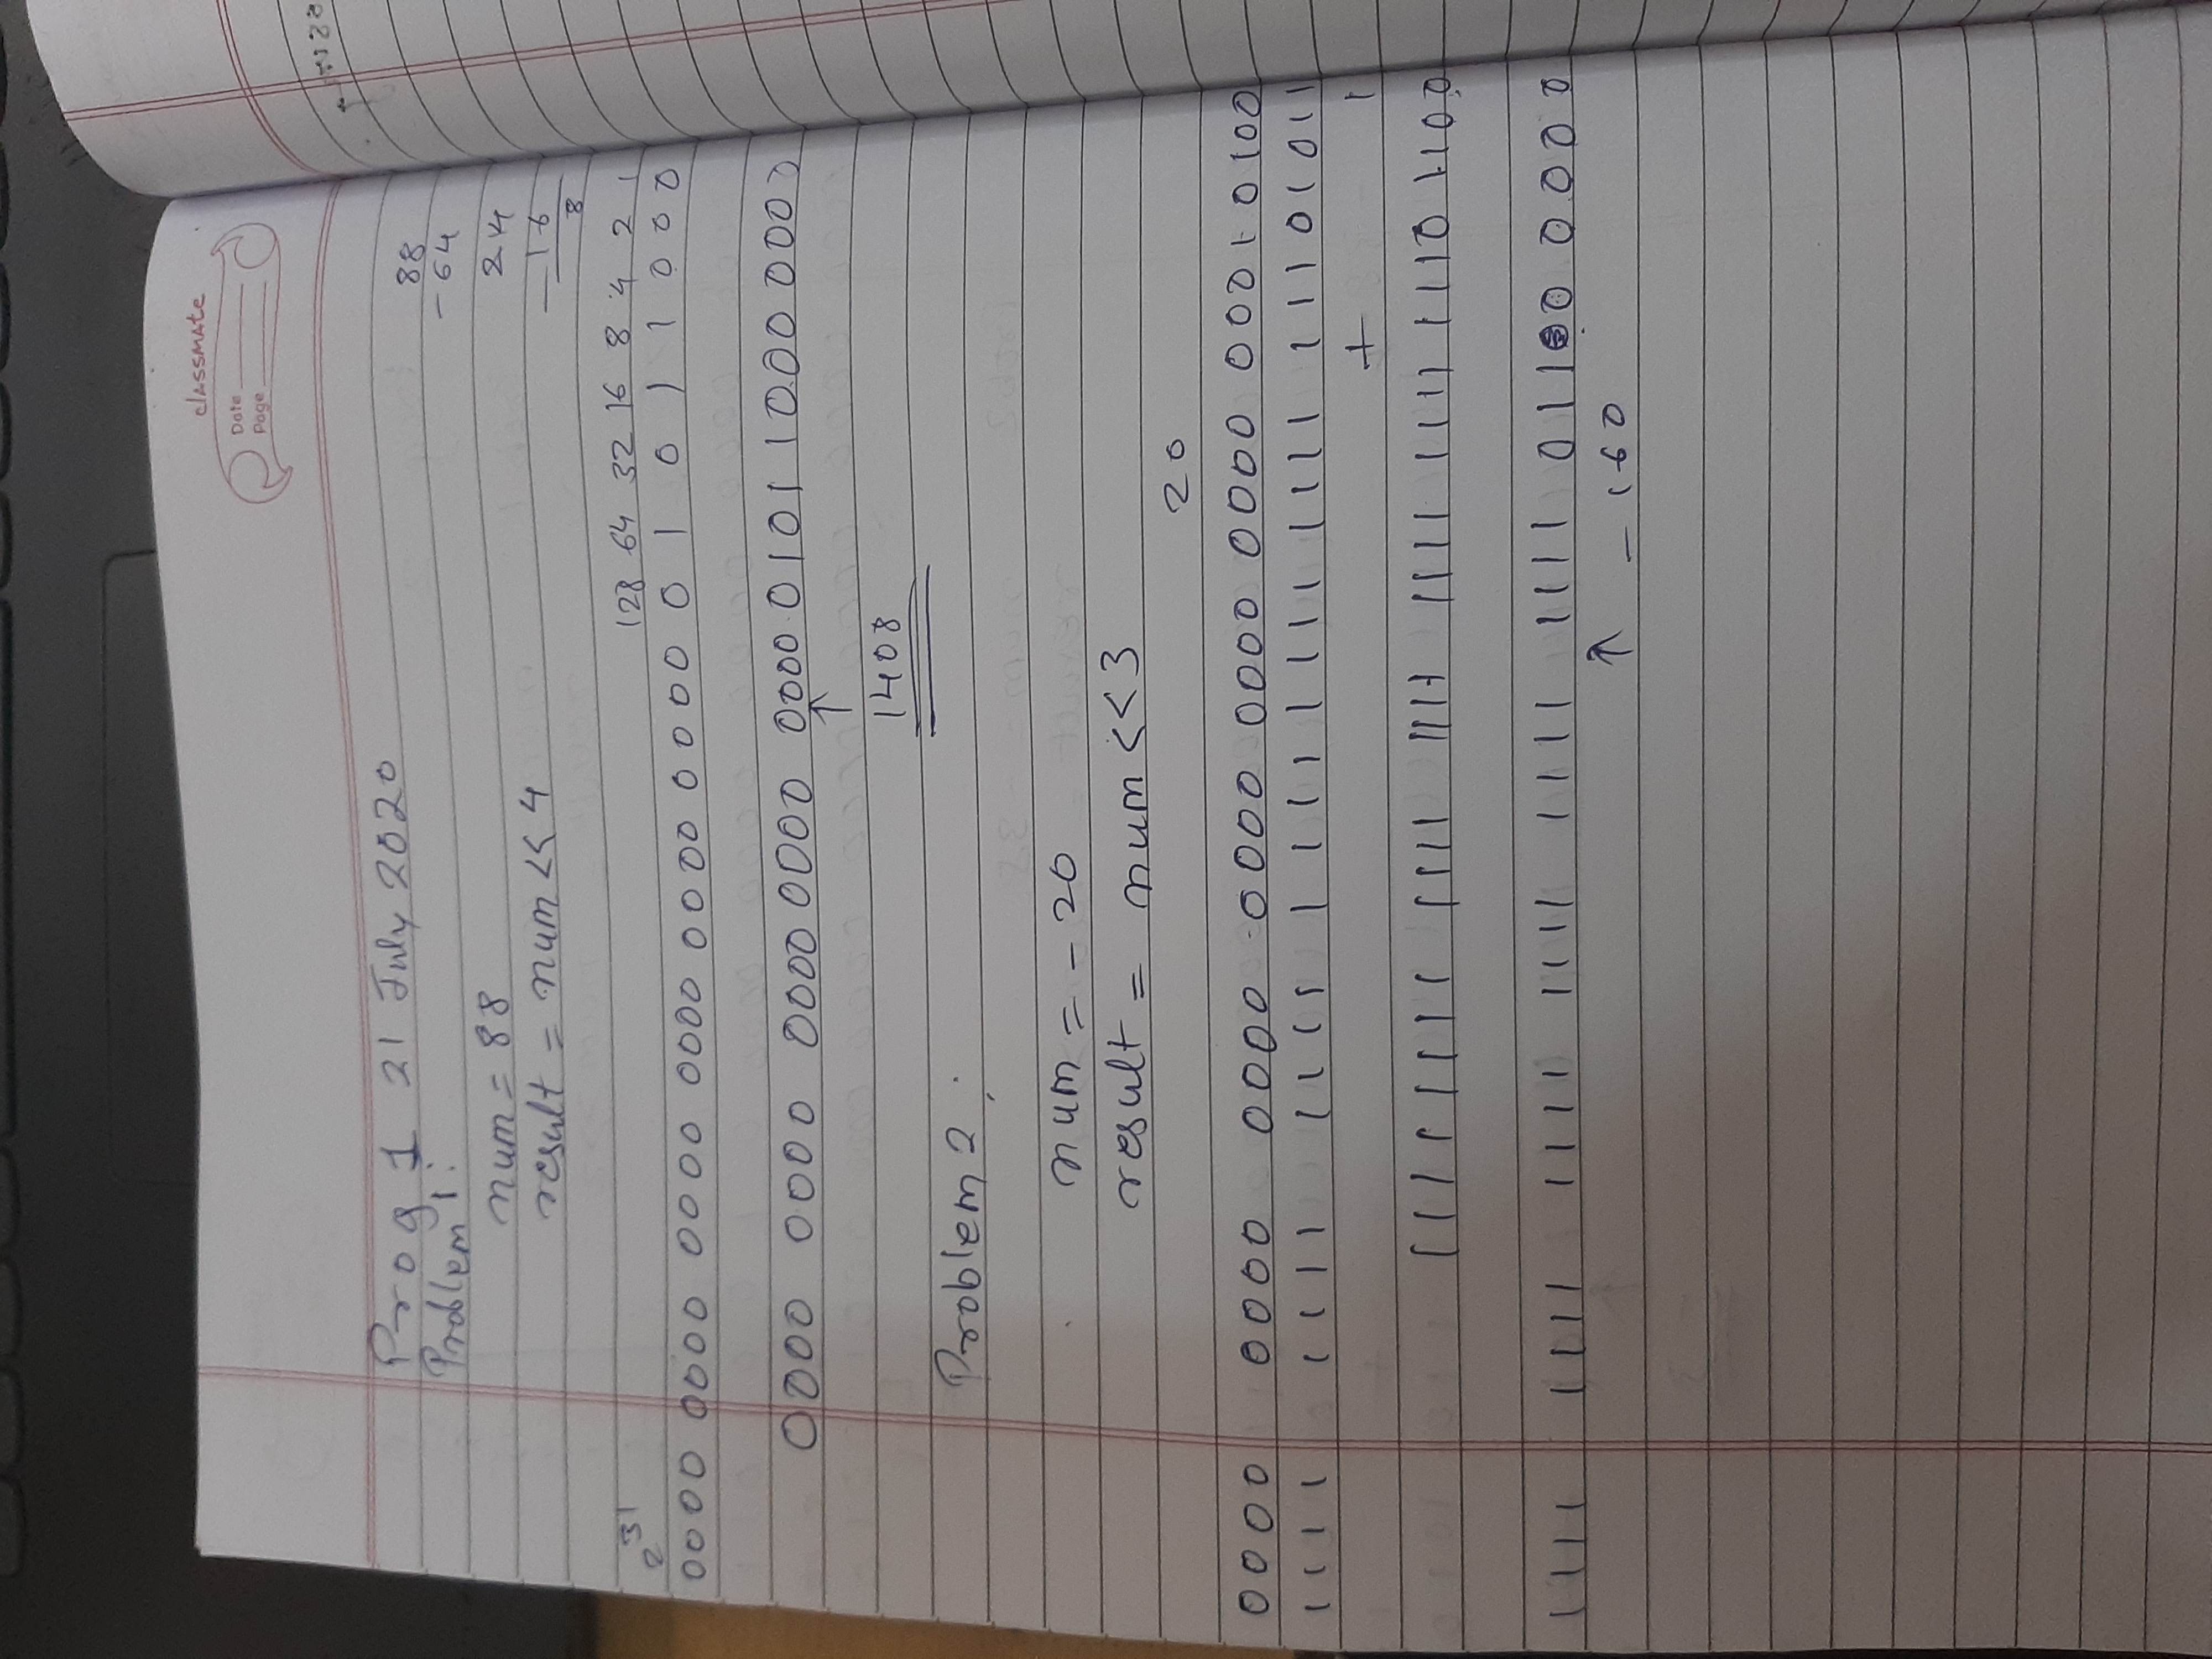 classmate
Date
Page
Prog 1 21 July 2020
Problem 1:
num = 88
result = num << 4
88
- 64
24
- 16
8
2^31
128 64 32 16 8 4 2 1
0000 0000 0000 0000 0000 0000 0 1 0 1 1 0 0 0
0000 0000 0000 0000 0000 0101 1000 0000
↑
1408
Problem 2 :
num = - 20
result = num << 3
20
0000 0000 0000 0000 0000 0000 0001 0100
1111 1111 1111 1 1111 1111 1111 1110 1011
+ 1
1111 1111 1111 1111 1111 1111 1110 1100
1111 1111 1111 1111 1111 1111 01100 0000
↑ - 160